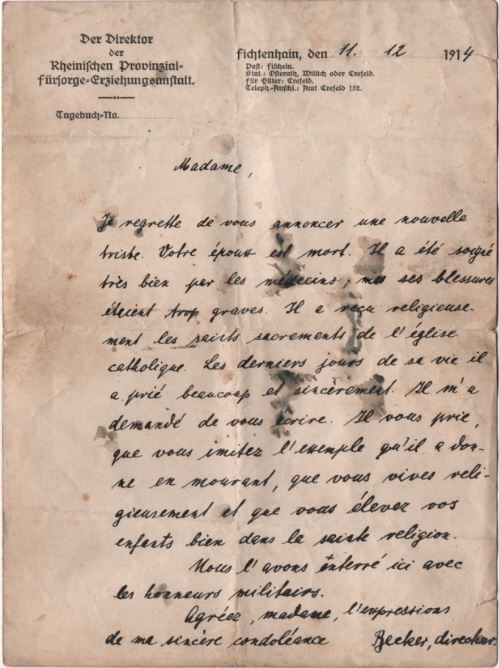 Der Direktor
der
Rheinischen Provinzial-
Fürsorge-Erziehungsanstalt.
Tagebuch-No.
Fichtenhain, den 11. 12 1914
Post: Fischeln.
Stat.: Osterath, Willich oder Crefeld.
Für Güter: Crefeld.
Teleph.-Anschl.: Amt Crefeld 152.
Madame,
Je regrette de vous annoncer une nouvelle
triste. Votre époux est mort. Il a été soigné
très bien par les médecins, mes ses blessures
éteient trop graves. Il a reçu religieuse-
ment les saints sacrements de l'église
catholique. Les derniers jours de sa vie il
a prié beaucoup et sincèrement. Il m'a
demandé de vous écrire. Il vous prie,
que vous imitez l'exemple qu'il a don-
ne en mourant, que vous vives reli-
gieusement et que vous élevez vos
enfants bien dans la sainte religion.
Nous l'avons enterré ici avec
les honneurs militairs.
Agréez, madame, l'expressions
de ma sincère condoléance Becker, directeur.